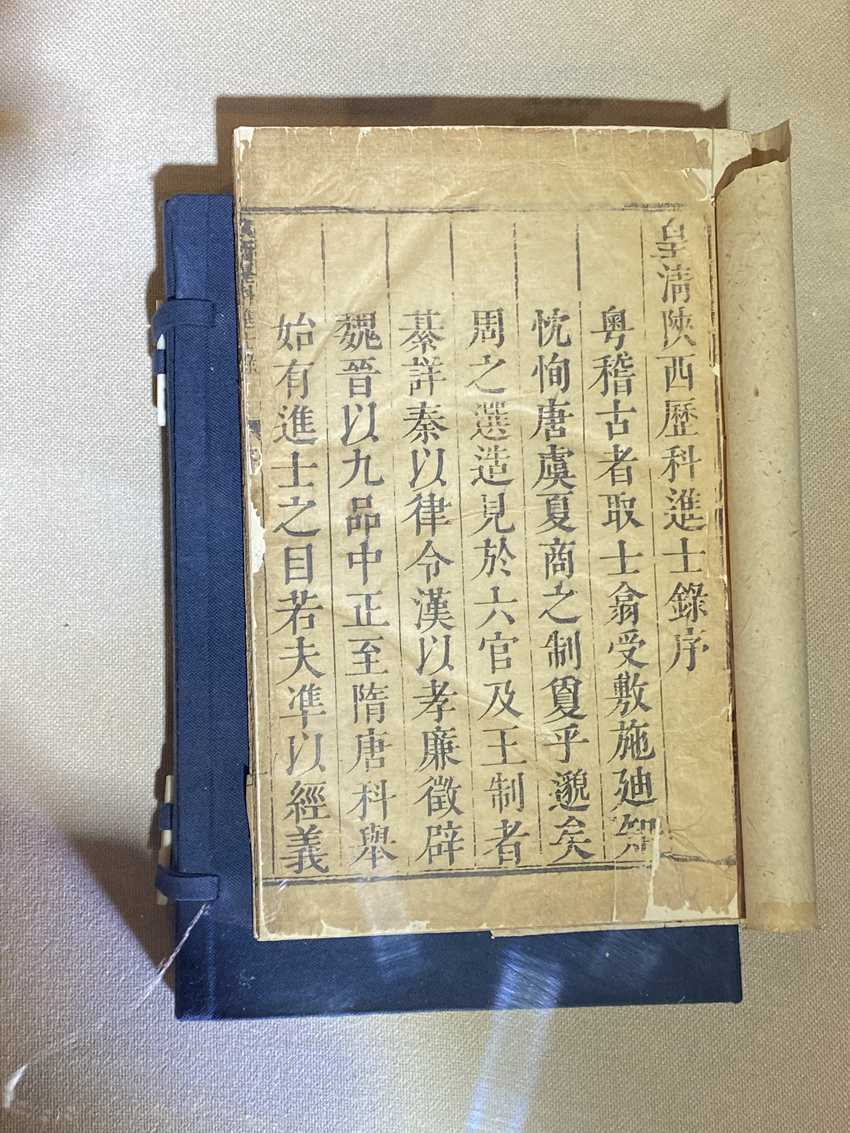 皇清陝西歷科進士錄序
粵稽古者取士翕受敷施廸知
忱恂唐虞夏商之制敻乎邈矣
周之選造見於六官及王制者
綦詳秦以律令漢以孝廉徵辟
魏晉以九品中正至隋唐科舉
始有進士之目若夫準以經義